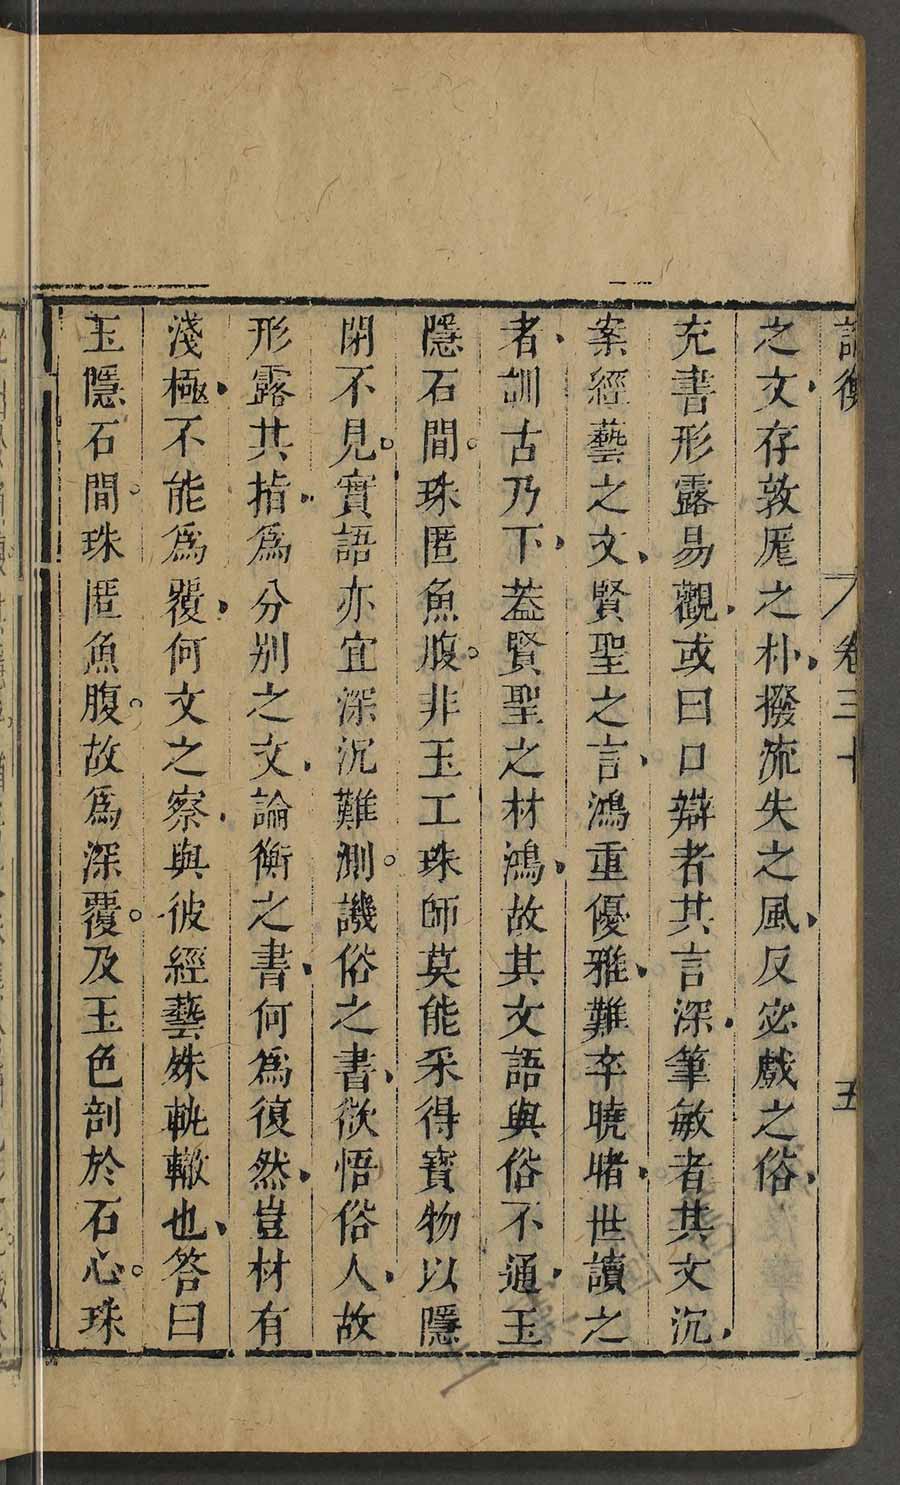 論衡 卷三十 五
之文存敦厖之朴撥流失之風反宓戲之俗
充書形露易觀或曰口辯者其言深筆敏者其文沉
案經藝之文賢聖之言鴻重優雅難卒曉睹世讀之
者訓古乃下葢賢聖之材鴻故其文語與俗不通玉
隱石間。珠匿魚腹。非玉工珠師莫能采得寳物以隱
閉不見。實語亦宜深沉難測。譏俗之書欲悟俗人故
形露其指爲分別之文論衡之書何爲復然豈材有
淺極不能爲覆何文之察與彼經藝殊軌轍也答曰
玉隱石間。珠匿魚腹。故爲深覆。及玉色剖於石心。珠